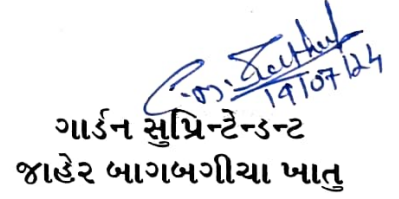 19/07/24
ગાર્ડન સુપ્રિન્ટેન્ડન્ટ
જાહેર બાગબગીચા ખાતુ